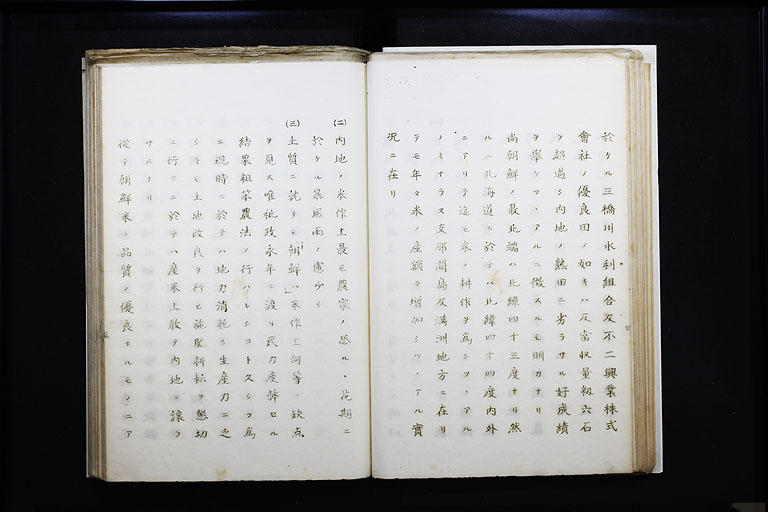 於ケル三橋川水利組合及不二興業株式
會社ノ優良田ノ如キハ反當収量籾六石
ヲ超過シ内地ノ熟田ニ劣ラサル好成績
ヲ擧ケツヽアルニ徴スルモ明カナリ
尚朝鮮ノ最北端ハ北緯四十三度ナリ然
ルニ北海道ニ於テハ北緯四十四度内外
ニアリテ迄モ米ノ耕作ヲ為シツヽアル
ノミナラス支那間島及満洲地方ニ在リ
テモ年々米ノ産額ヲ増加シツヽアル實
況ニ在リ
(二)内地ノ米作上最モ農家ノ恐ルヽ花期ニ
於ケル暴風雨ノ慮少シ
(三)土質ニ就テモ朝鮮ハ米作上何等ノ缺点
ヲ見ス唯秕政永年ニ渡リ民力疲弊セル
結果粗笨農法ノ行ハレシコト久シク為
ニ現時ニ於テハ地力消耗シ生産力ニ乏
シキモ土地改良ヲ行ヒ施肥耕耘ヲ懇切
ニ行フニ於テハ産米上敢テ内地ニ譲ラ
サルナリ
従テ朝鮮米ノ品質ノ優良ナルモノニア